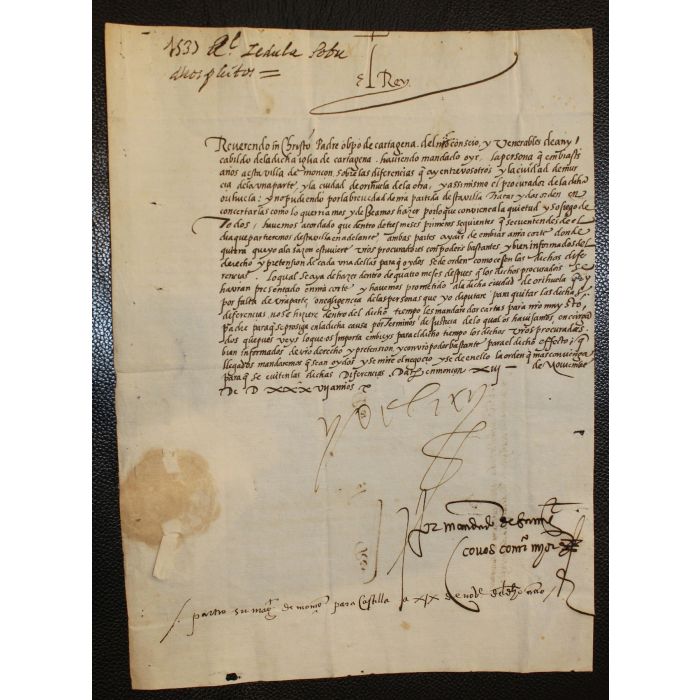 1537 Rl Zedula sobre
dhos pleitos =
El Rey
Reuerendo in Christo Padre obpo de cartagena. del nro conseio, y Venerables dean y
cabildo de la dicha iglia de cartagena. hauiendo mandado oyr, la persona q embiasteis
a esta villa de monçon, sobre las diferencias q ay entre vosotros y la ciudad de mur
cia de la vna parte, y la ciudad de orihuela de la otra, y assimismo el procurador de la dicha
orihuela: y no pudiendo por la breuedad de nra partida desta villa tratar y dar orden en
concertarlas como lo querriamos, y desseamos hazer por lo que conuiene a la quietud y sosiego de
Todos, hauemos acordado que dentro de tres meses primeros siguientes q se cuenten desde el
dia que partieremos desta villa en adelante. ambas partes ayais de embiar a nra corte donde
quiera que yo a la sazon estuuiere vros procuradores con poderes bastantes y bien informados del
derecho y pretension de cada vna dellas para q oydos se de orden como cesen las dichas dife
rencias. Lo qual se aya de hazer dentro de quatro meses despues q los dichos procuradores se
hauran presentado en mi corte y hauemos prometido a la dicha ciudad de orihuela q si
por falta de vra parte o negligencia de las personas que yo diputare para quitar las dichas
diferencias, no se hiziere dentro del dicho tiempo les mandare dar cartas para nro muy sto
padre para q se prosiga en la dicha causa por terminos de justicia de lo qual os hauisamos, y encargamos
dos que pues veys lo que os importa embieys para el dicho tiempo los dichos vros procuradores
bien informados de vro derecho y pretension, y con vro poder bastante para el dicho effecto; q
llegados mandaremos q sean oydos y se mire el negocio y se de en ello la orden q mas conuenga
para q se euiten las dichas Diferencias. Dat en monçon XVI de Nouiembre
De D XXX VII años
yo el rey
Por mandado de su mt
Couos comr mayor
partio su magt de monçon para Castilla a XIX de nobe del dho año